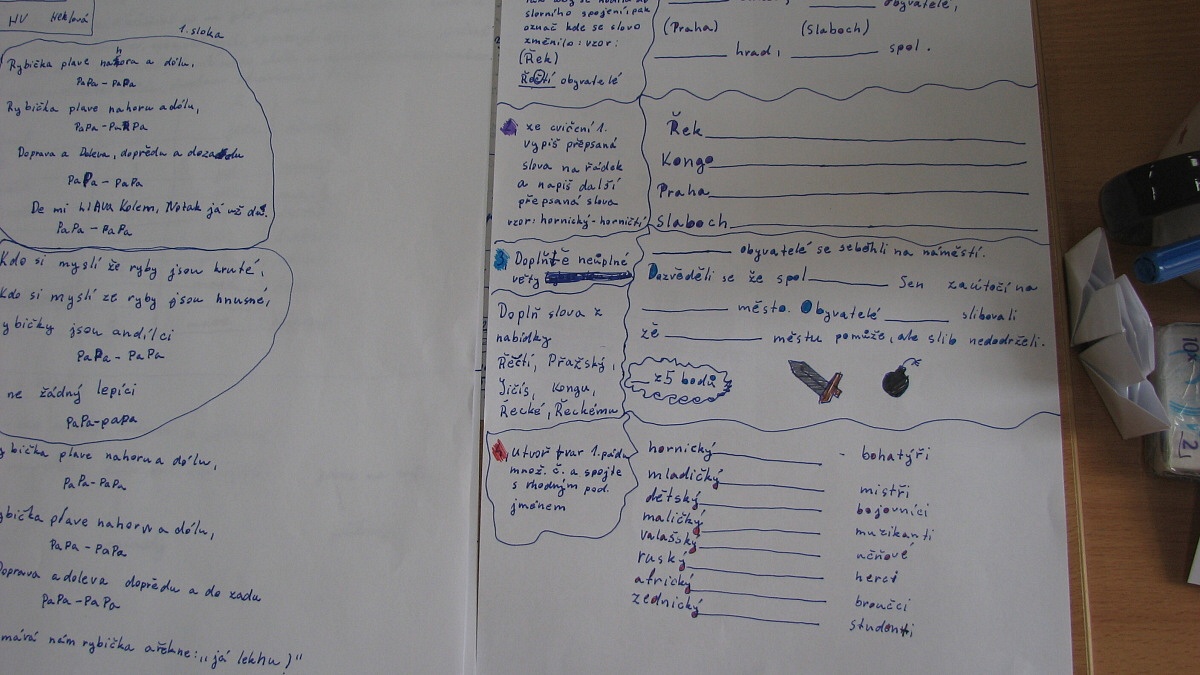 HV Heklová
1. sloka
Rybička plave nahoru a dólu,
PaPa - PaPa
Rybička plave nahoru a dólu,
PaPa - PaPa
Doprava a Doleva, dopředu a dozadu
PaPa - PaPa
De mi hlava kolem, Notak já už du.
PaPa - PaPa
Kdo si myslí že ryby jsou kruté,
Kdo si myslí ze ryby jsou hnusné,
ybičky jsou andílci
PaPa - PaPa
ne žádný lepíci
PaPa-PaPa
ybička plave nahoru a dólu,
PaPa-PaPa
ybička plave nahoru a dólu,
PaPa - PaPa
Doprava a doleva dopředu a do zadu
PaPa - PaPa
mává nám rybička a řekne: „já lekhu)"
slovního spojení, pak
označ kde se slovo
změnilo: vzor:
(Řek)
Řečtí obyvatelé
obyvatelé,
(Praha) (Slaboch)
hrad, spol.
ze cvičení 1.
vypiš přepsaná
slova na řádek
a napiš další
přepsaná slova
vzor: hornický-horničtí
Řek
Kongo
Praha
Slaboch
3. Doplňtě neúplné
věty
Doplň slova z
nabídky
Řečtí, Pražský,
Jičís, Kongu,
Řecké, Řeckému
obyvatelé se seběhli na náměstí.
Dozvěděli se že spol Sen zaútočí na
město. Obyvatelé slibovali
zě městu pomůže, ale slib nedodrželi.
z5 bodů
4. Utvoř tvar 1. pádu
množ. č. a spojte
s vhodným pod.
jménem
hornický - bohatýři
mladičký mistři
dětský bojovníci
maličký muzikanti
valašský učňové
ruský herci
africký broučci
zednický studenti